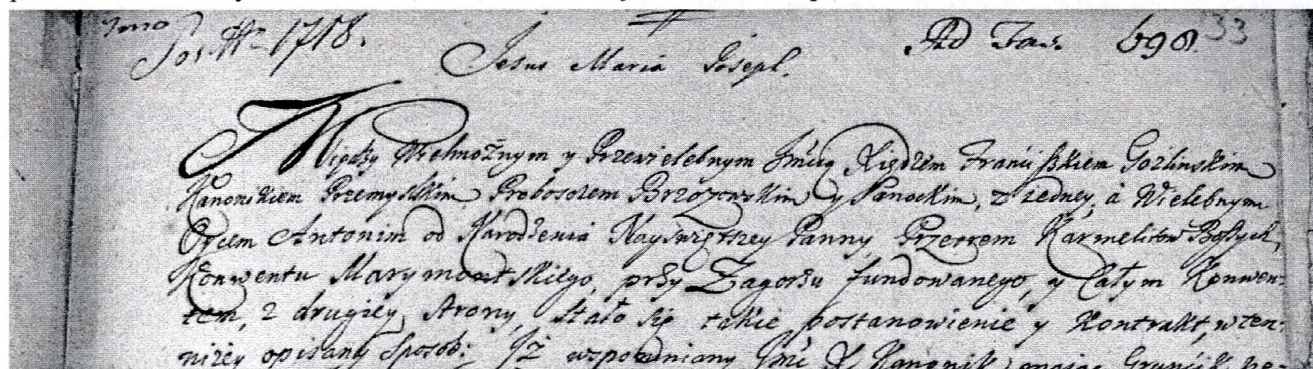 1mo
Pos. Nr 1718. Ad Fas. 698 33
Jesus Maria Joseph.
Między Wielmożnym y Przewielebnym Jmcią Xiędzem Franciszkiem Goźlinskim
Kanonikiem Przemyslkim Proboszczem Brzozowskim y Sanockim, z iedney, á Wielebnym
Oycem Antonim od Narodzenia Nayswiętszey Panny, Przeorem Karmelitow Bossych,
Konwentu Marymontskiego, przy Zagorzu fundowanego, y Całym Konwen-
tem, z drugiey Strony, Stało się takie postanowienie y Kontrakt, w ten-
niżey opisany Sposob: Iż wspomniany Jmć X. Kanonik, maiąc Gruncik